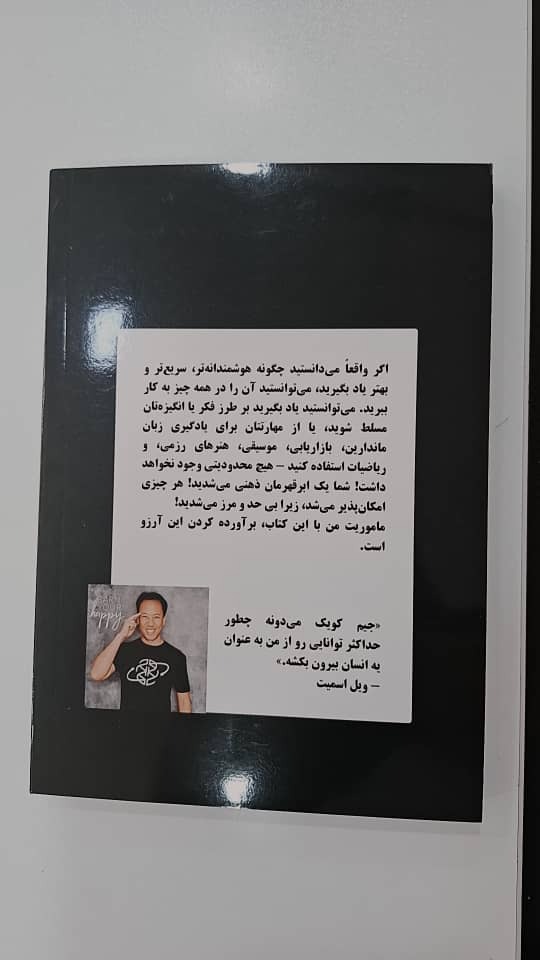 اگر واقعاً می‌دانستید چگونه هوشمندانه‌تر، سریع‌تر و
بهتر یاد بگیرید، می‌توانستید آن را در همه چیز به کار
ببرید. می‌توانستید یاد بگیرید بر طرز فکر یا انگیزه‌تان
مسلط شوید، یا از مهارتتان برای یادگیری زبان
ماندارین، بازاریابی، موسیقی، هنرهای رزمی، و
ریاضیات استفاده کنید – هیچ محدودیتی وجود نخواهد
داشت! شما یک ابرقهرمان ذهنی می‌شدید! هر چیزی
امکان‌پذیر می‌شد، زیرا بی حد و مرز می‌شدید!
ماموریت من با این کتاب، برآورده کردن این آرزو
است.
happy
«جیم کویک می‌دونه چطور
حداکثر توانایی رو از من به عنوان
یه انسان بیرون بکشه.»
– ویل اسمیت